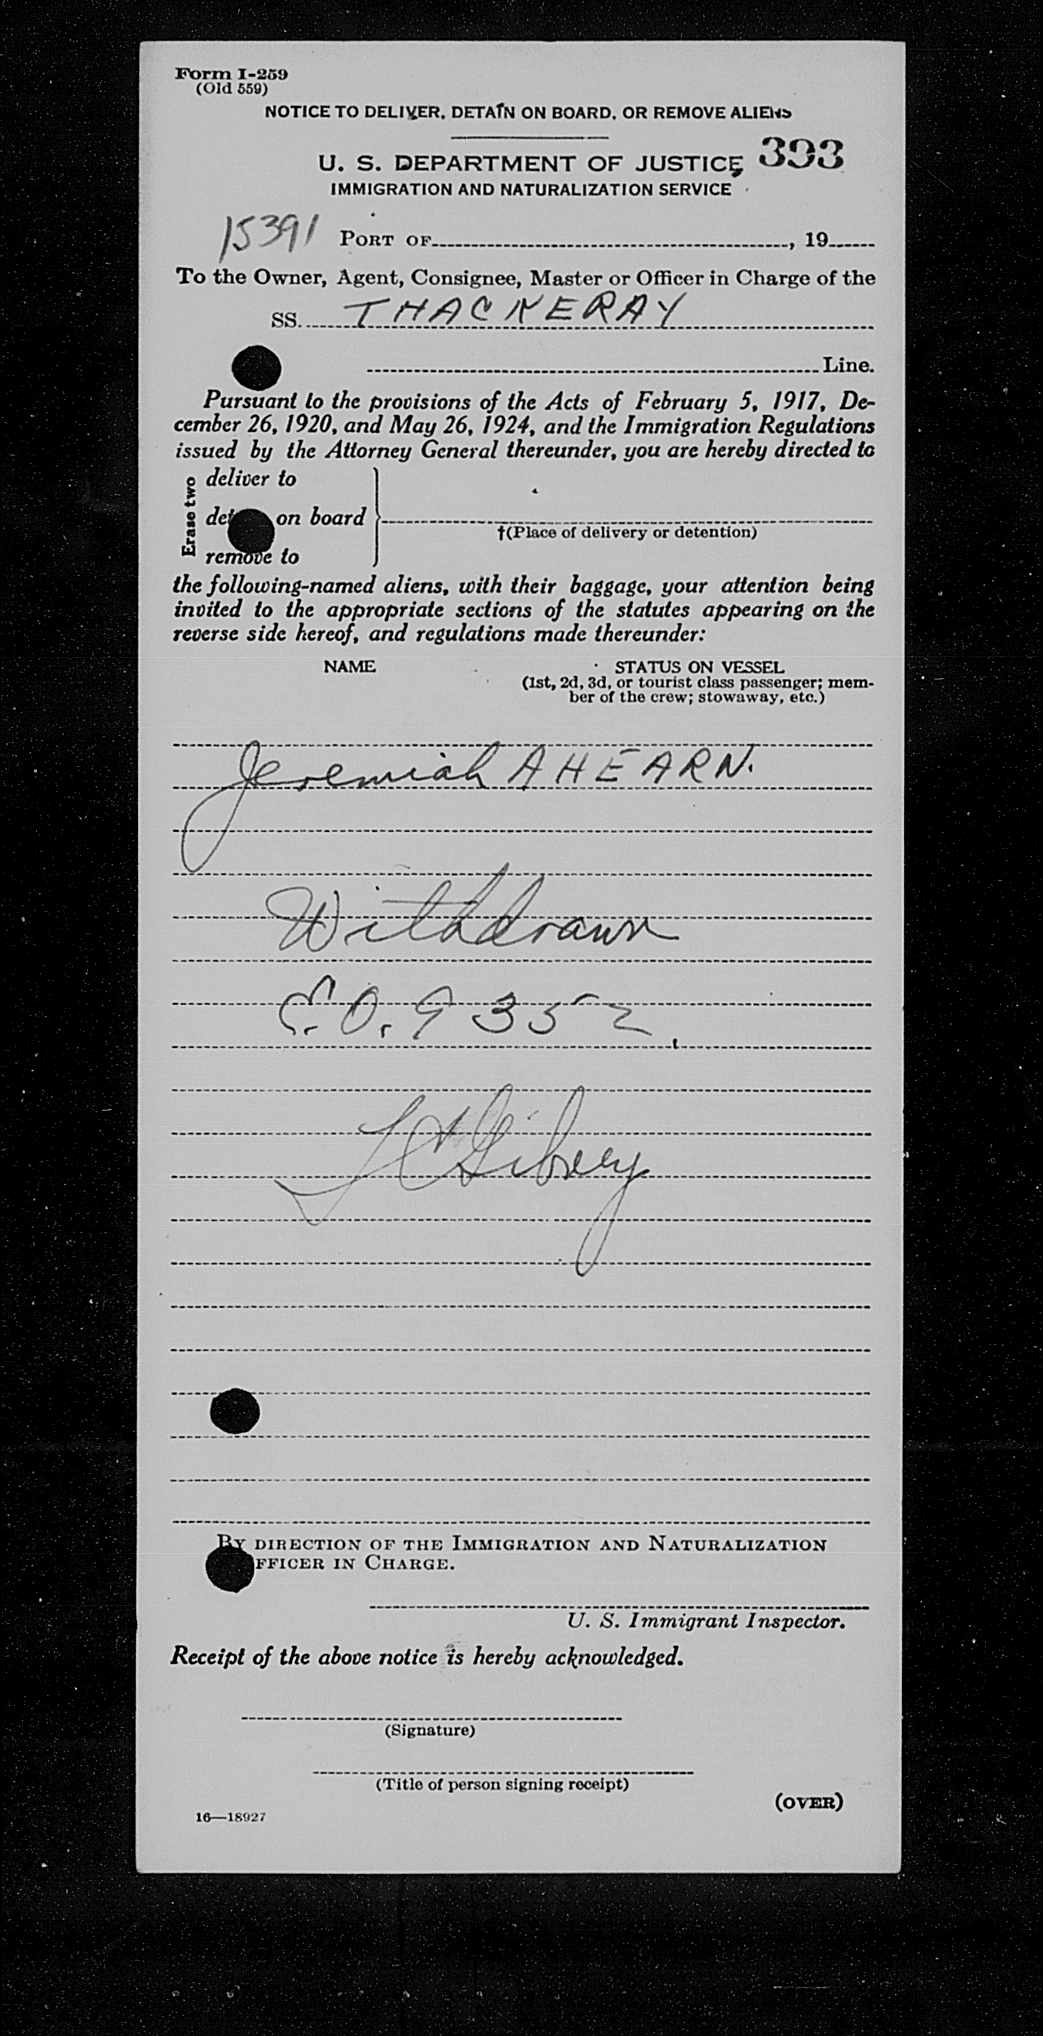 Form I-259
(Old 559)
NOTICE TO DELIVER, DETAIN ON BOARD, OR REMOVE ALIENS
393
U. S. DEPARTMENT OF JUSTICE
IMMIGRATION AND NATURALIZATION SERVICE
15391 PORT OF , 19
To the Owner, Agent, Consignee, Master or Officer in Charge of the
SS. THACKERAY
Line.
Pursuant to the provisions of the Acts of February 5, 1917, De-
cember 26, 1920, and May 26, 1924, and the Immigration Regulations
issued by the Attorney General thereunder, you are hereby directed to
Erase two
deliver to
on board
†(Place of delivery or detention)
remove to
the following-named aliens, with their baggage, your attention being
invited to the appropriate sections of the statutes appearing on the
reverse side hereof, and regulations made thereunder:
NAME STATUS ON VESSEL
(1st, 2d, 3d, or tourist class passenger; mem-
ber of the crew; stowaway, etc.)
Jeremiah AHEARN.
Withdrawn
E.O. 9352.
BY DIRECTION OF THE IMMIGRATION AND NATURALIZATION
OFFICER IN CHARGE.
U. S. Immigrant Inspector.
Receipt of the above notice is hereby acknowledged.
(Signature)
(Title of person signing receipt)
(OVER)
16—18927